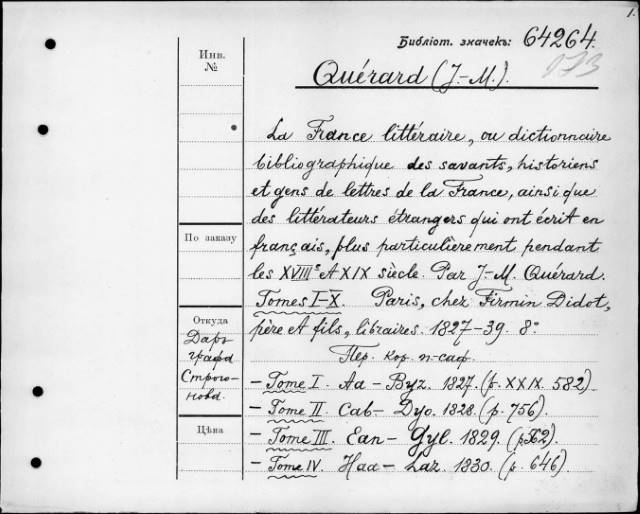 1.
Библіот. значекъ: 64264.
Инв. №
073
Quérard (J.-M.).
La France littéraire, ou dictionnaire
bibliographique des savants, historiens
et gens de lettres de la France, ainsi que
des littérateurs étrangers qui ont écrit en
français, plus particulièrement pendant
les XVIIIe et XIX siècle. Par J.-M. Quérard.
Tomes I-X. Paris, chez Firmin Didot,
père et fils, libraires. 1827-39. 8º
Пер. кор. п-саф.
— Tome I. Aa — Byz. 1827. (p. XXIX. 582).
— Tome II. Cab — Dyo. 1828. (p. 756).
— Tome III. Ean — Gyl. 1829. (p.
— Tome IV. Haa — Laz. 1830. (p. 646).
По заказу
Откуда
Даръ
графа
Строго-
нова.
Цѣна